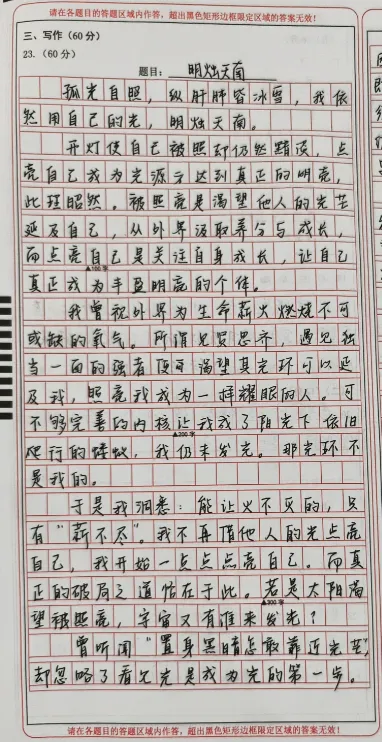 请在各题目的答题区域内作答，超出黑色矩形边框限定区域的答案无效！
三、写作（60分）
23.（60分）
题目：明烛天南
孤光自照，纵肝肺皆冰雪，我依
然用自己的光，明烛天南。
开灯使自己被照却仍然黯淡，点
亮自己成为光源才达到真正的明亮，
此理昭然。被照亮是渴望他人的光芒
延及自己，从外界汲取养分与成长，
而点亮自己是关注自身成长，让自己
真正成为丰盈明亮的个体。
▲100字
我曾视外界为生命薪火燃烧不可
或缺的氧气。所谓见贤思齐，遇见独
当一面的强者便可渴望其光环可以延
及我，照亮我成为一样耀眼的人。可
不够完善的内核让我成了阳光下依旧
▲200字
爬行的蝼蚁，我仍未发光。那光环不
是我的。
于是我洞悉：能让火不灭的，只
有“薪不尽”。我不再借他人的光点亮
自己，我开始一点点点亮自己。而真
正的破局之道恰在于此。若是太阳渴
▲300字
望被照亮，宇宙又有谁来发光？
曾听闻“置身黑暗怎敢靠近光芒”，
却忽略了看见光是成为光的第一步。
请在各题目的答题区域内作答，超出黑色矩形边框限定区域的答案无效！